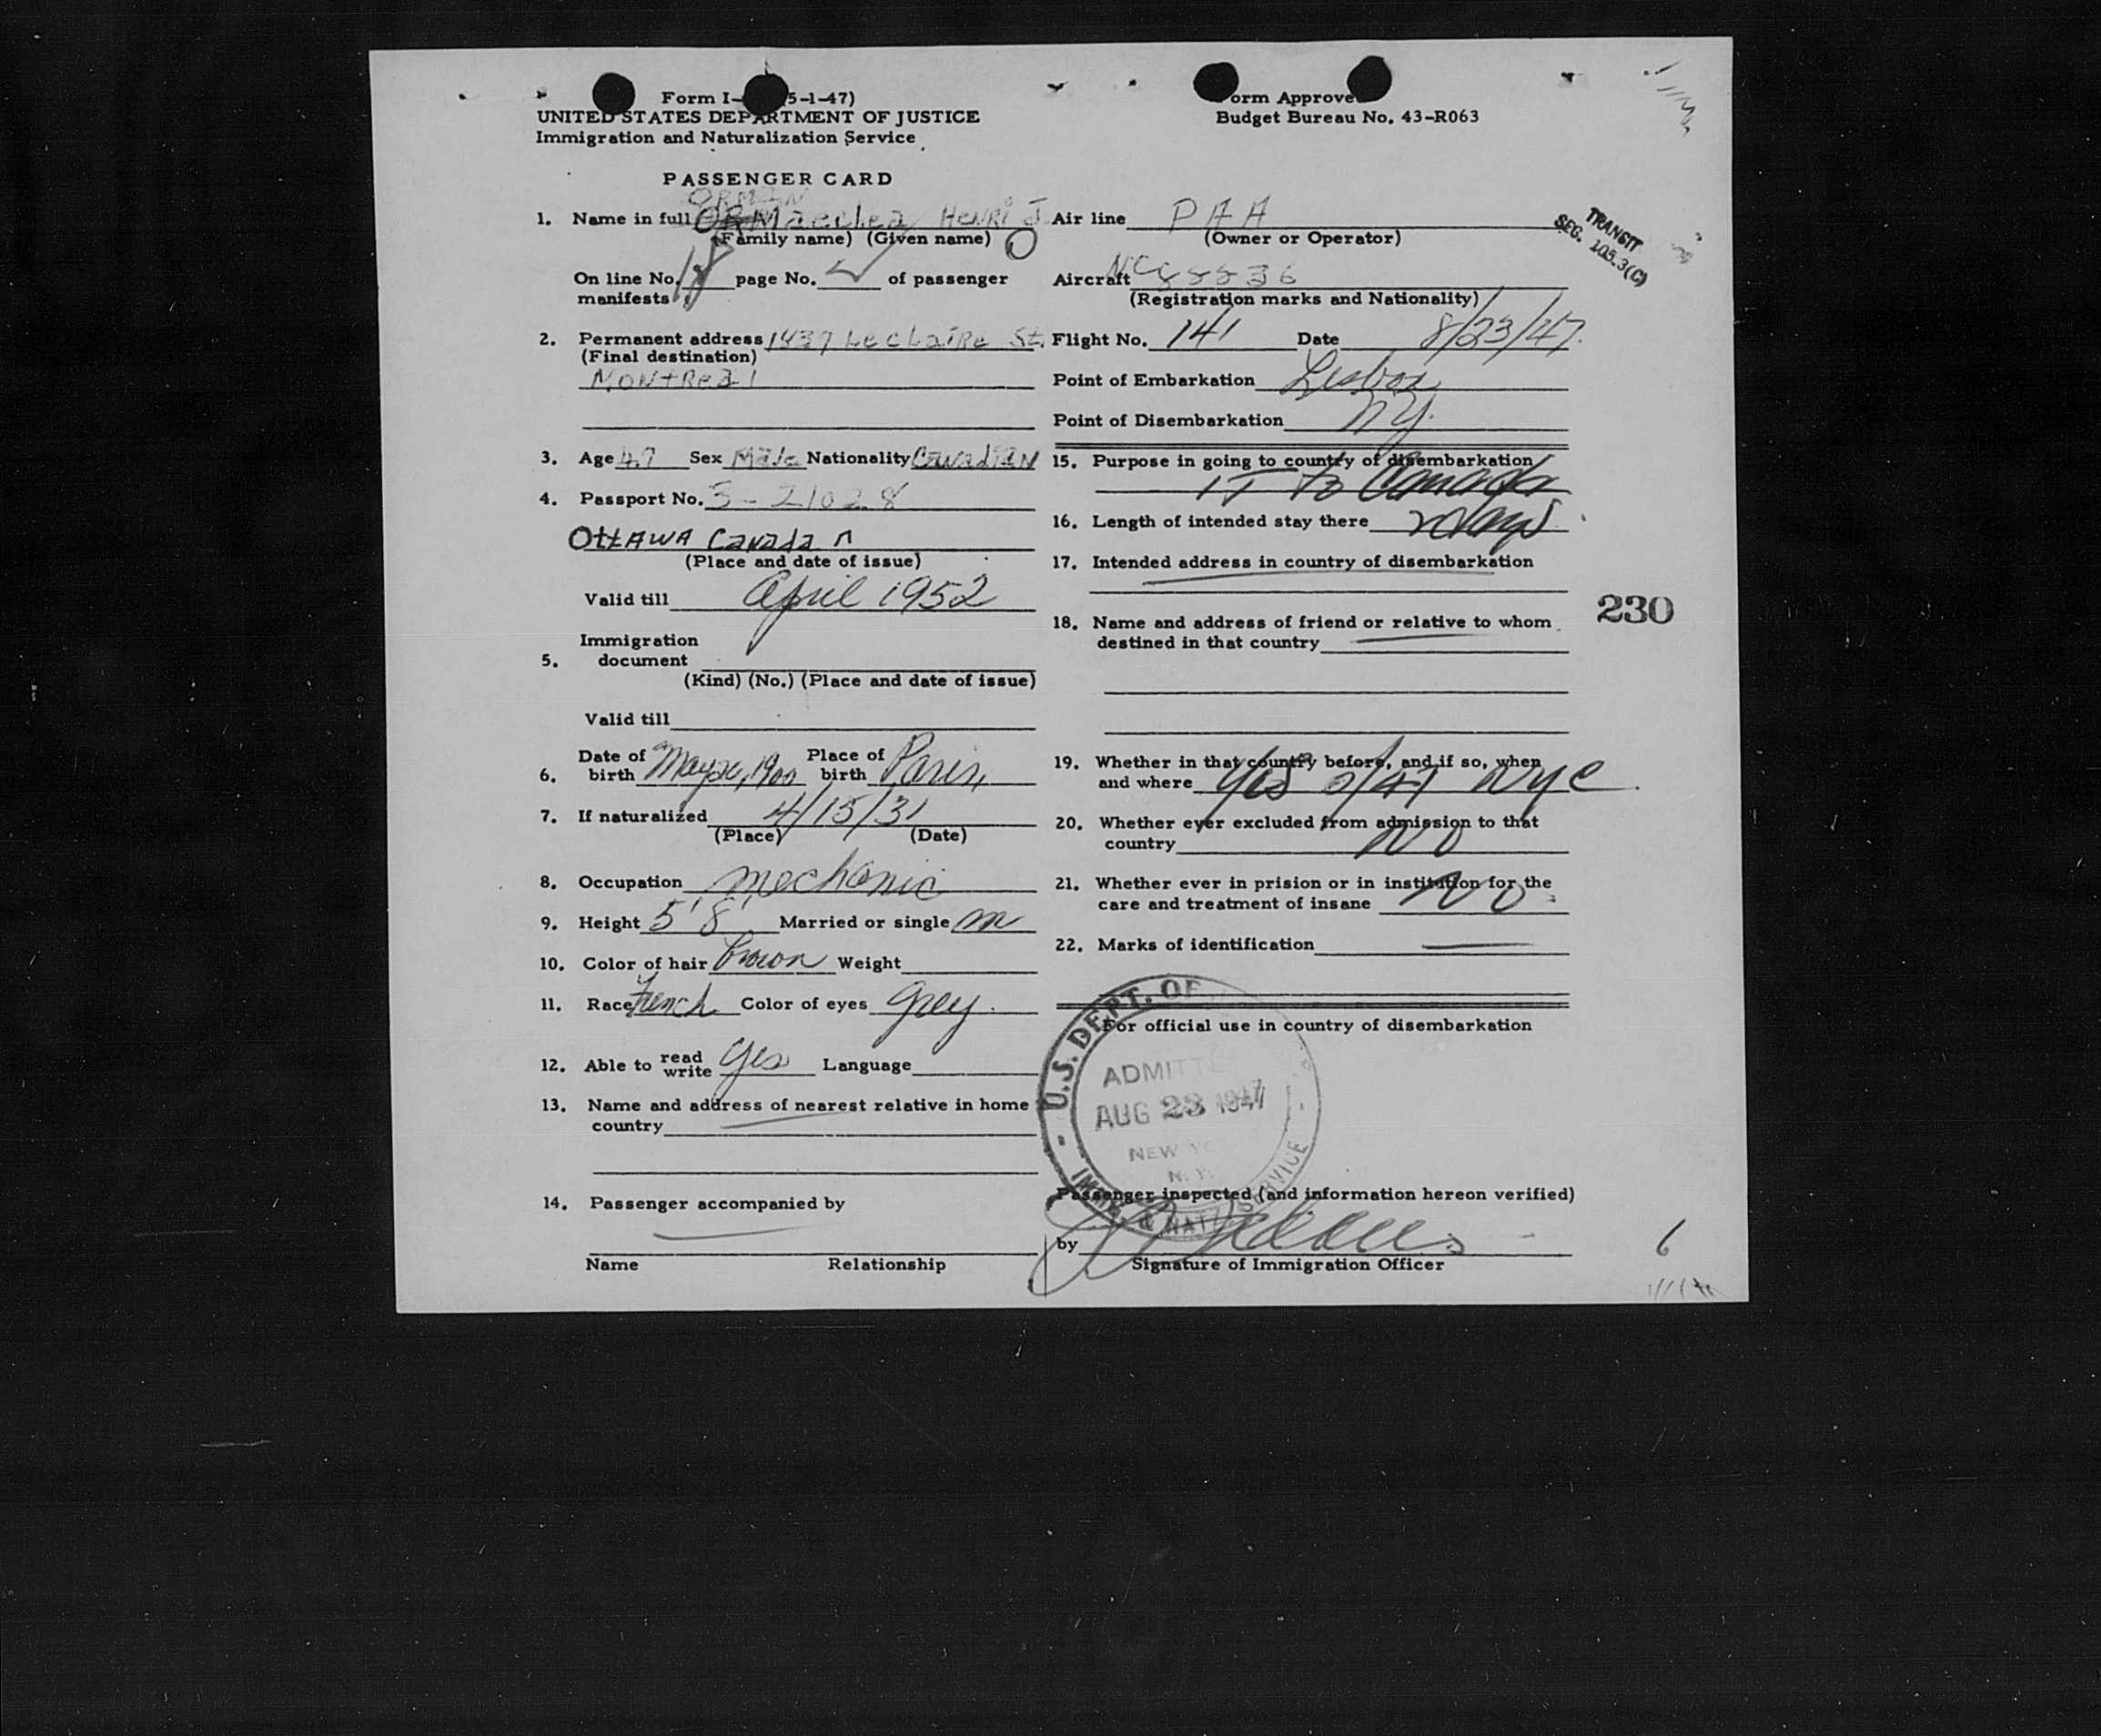 Form I- (5-1-47)
UNITED STATES DEPARTMENT OF JUSTICE
Immigration and Naturalization Service
Form Approved
Budget Bureau No. 43-R063
PASSENGER CARD
1. Name in full HENRI J
(Family name) (Given name)
On line No. page No. of passenger
manifests
2. Permanent address 1437 LecLaiRe St.
(Final destination)
MONtReal
3. Age 47 Sex Male Nationality Canadian
4. Passport No. 3-21028
OttAWA Canada
(Place and date of issue)
Valid till April 1952
Immigration
5. document
(Kind) (No.) (Place and date of issue)
Valid till
Date of Place of
6. birth May 1900 birth Paris,
7. If naturalized 4/15/31
(Place) (Date)
8. Occupation mechanic
9. Height 5' 8" Married or single m
10. Color of hair brown Weight
11. Race French Color of eyes Grey.
12. Able to read write yes Language
13. Name and address of nearest relative in home
country
14. Passenger accompanied by
Name Relationship
Air line PAA
(Owner or Operator)
Aircraft NC 88836
(Registration marks and Nationality)
Flight No. 141 Date 8/23/47.
Point of Embarkation Lisbon
Point of Disembarkation NY.
15. Purpose in going to country of disembarkation
IT to Canada
16. Length of intended stay there
17. Intended address in country of disembarkation
18. Name and address of friend or relative to whom
destined in that country
19. Whether in that country before, and if so, when
and where Yes /47 NYC
20. Whether ever excluded from admission to that
country NO
21. Whether ever in prision or in institution for the
care and treatment of insane NO
22. Marks of identification
For official use in country of disembarkation
U.S. DEPT. OF
ADMITTE
AUG 23 1947
NEW YO
N.Y.
IMM. & NATZ SERVICE
Passenger inspected (and information hereon verified)
by
Signature of Immigration Officer
TRANSIT
SEC. 105.3(C)
230
6